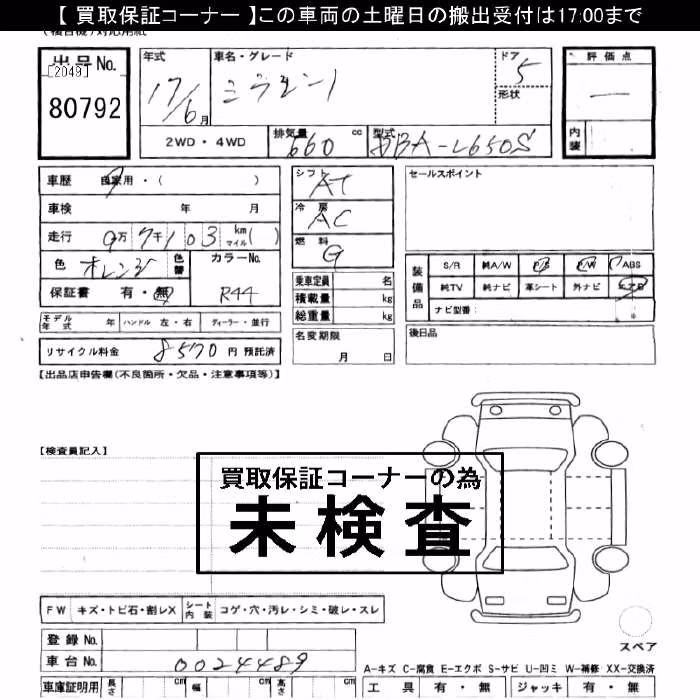 【 買取保証コーナー 】この車両の土曜日の搬出受付は17:00まで
出品No.
[2049]
80792
年式
17/6月
車名・グレード
ミラジーノ
ドア
5
形状
評価点
内装
2WD・4WD
排気量
660 cc
型式
DBA-L650S
車歴 自家用・( )
車検 年 月
走行 9万7千103 km マイル( )
色 オレンジ 色替 カラーNo.
保証書 有・無 R44
モデル年式 年 ハンドル 左・右 ディーラー・並行
リサイクル料金 8570 円 預託済
シフト
AT
冷房
AC
燃料
G
乗車定員 名
積載量 kg
総重量 kg
名変期限
月 日
セールスポイント
装備品
S/R 純A/W P/S P/W ABS
純TV 純ナビ 革シート 外ナビ エアB
ナビ型番:
後日品
【出品店申告欄(不良箇所・欠品・注意事項等)】
【検査員記入】
買取保証コーナーの為
未検査
FW キズ・トビ石・割レX シート内装 コゲ・穴・汚レ・シミ・破レ・スレ
登録No.
車台No. 0024489
車庫証明用 長さ cm 幅 cm 高さ cm
スペア
A-キズ C-腐食 E-エクボ S-サビ U-凹ミ W-補修 XX-交換済
工具 有・無 ジャッキ 有・無